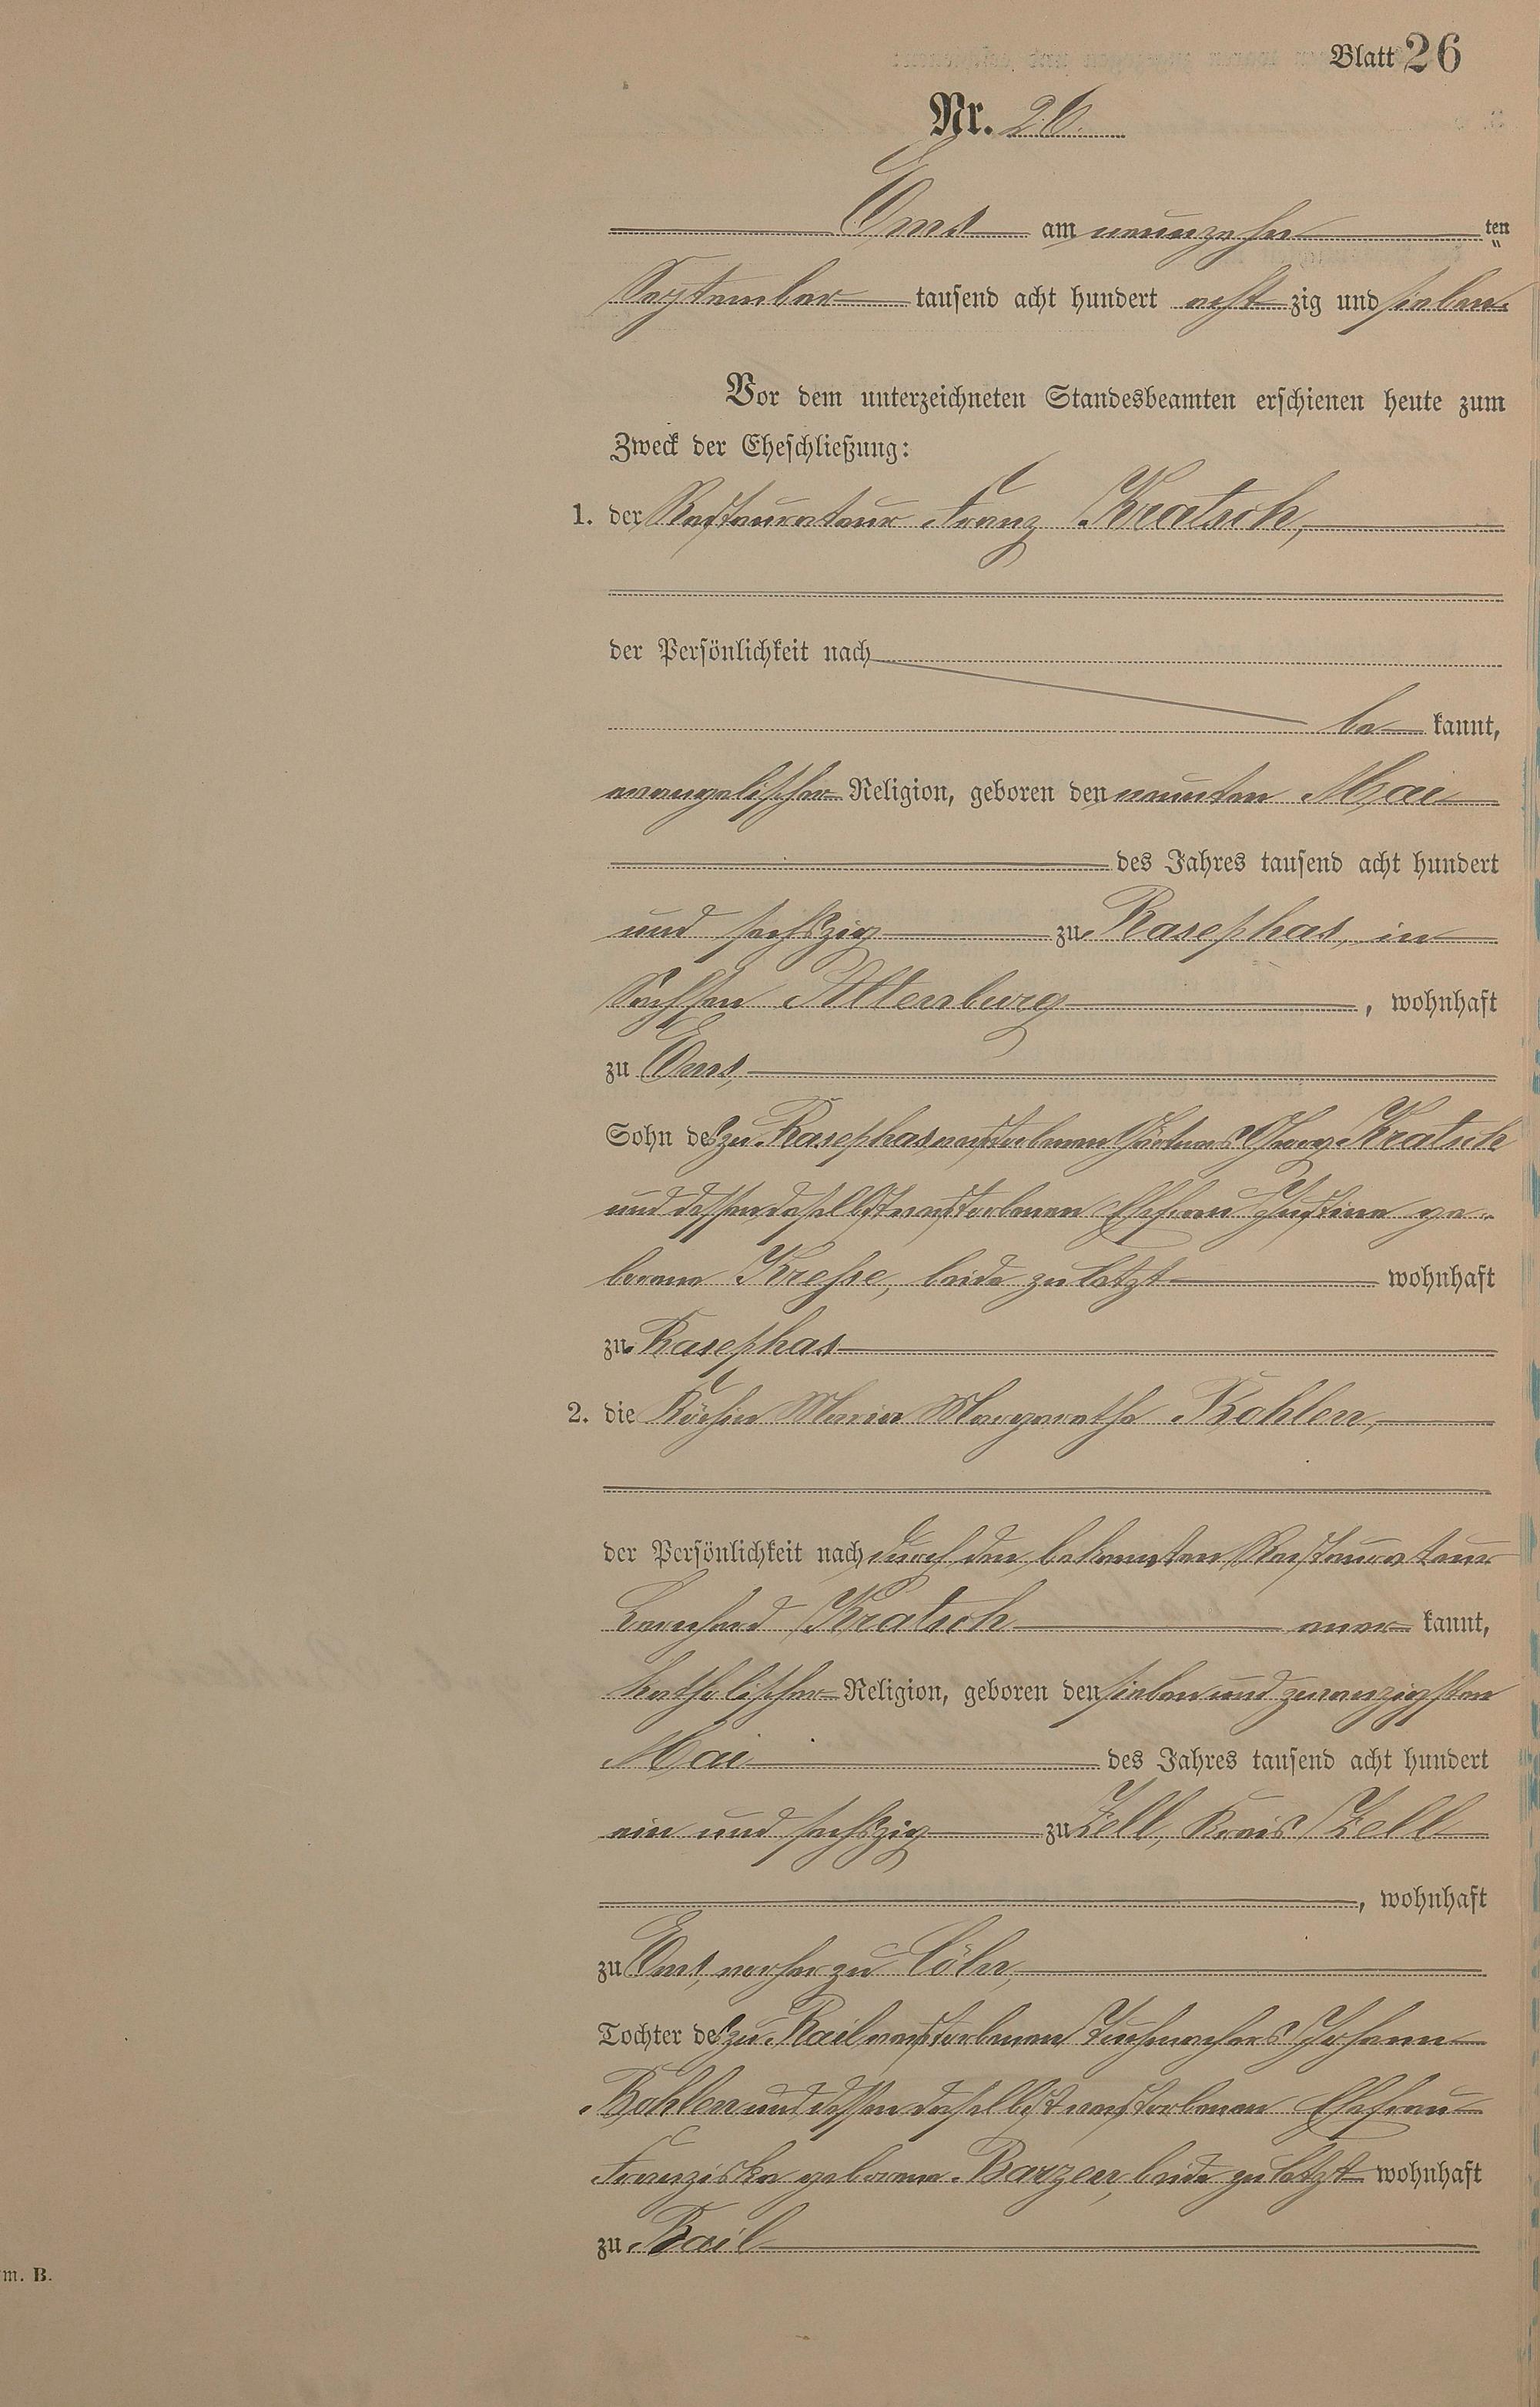 Blatt 26
Nr. 26.
Ems am neunzehn ten
September tausend acht hundert acht zig und sieben.
Vor dem unterzeichneten Standesbeamten erschienen heute zum
Zweck der Eheschließung:
1. der Restaurateur Franz Kratsch,
der Persönlichkeit nach
be kannt,
evangelischer Religion, geboren den neunten Mai
des Jahres tausend acht hundert
und sechszig zu Rasephas, in
Sachsen Altenburg, wohnhaft
zu Ems,
Sohn des zu Rasephas verstorbenen Gärtners Georg Kratsch
und dessen daselbst verstorbenen Ehefrau Justine ge-
borene Kresse, beide zuletzt wohnhaft
zu Rasephas
2. die Köchin Maria Margaretha Kohlen,
der Persönlichkeit nach durch den bekannten Restaurateur
Bernhard Kratsch aner kannt,
katholischer Religion, geboren den sieben und zwanzigsten
Mai des Jahres tausend acht hundert
ein und sechszig zu Zell, Kreis Zell
, wohnhaft
zu Ems, vorher zu Cöln,
Tochter des zu Kail verstorbenen Tuchmachers Johann
Kohlen und dessen daselbst verstorbenen Ehefrau
Franziska geborene Barzen, beide zuletzt wohnhaft
zu Kail
m. B.